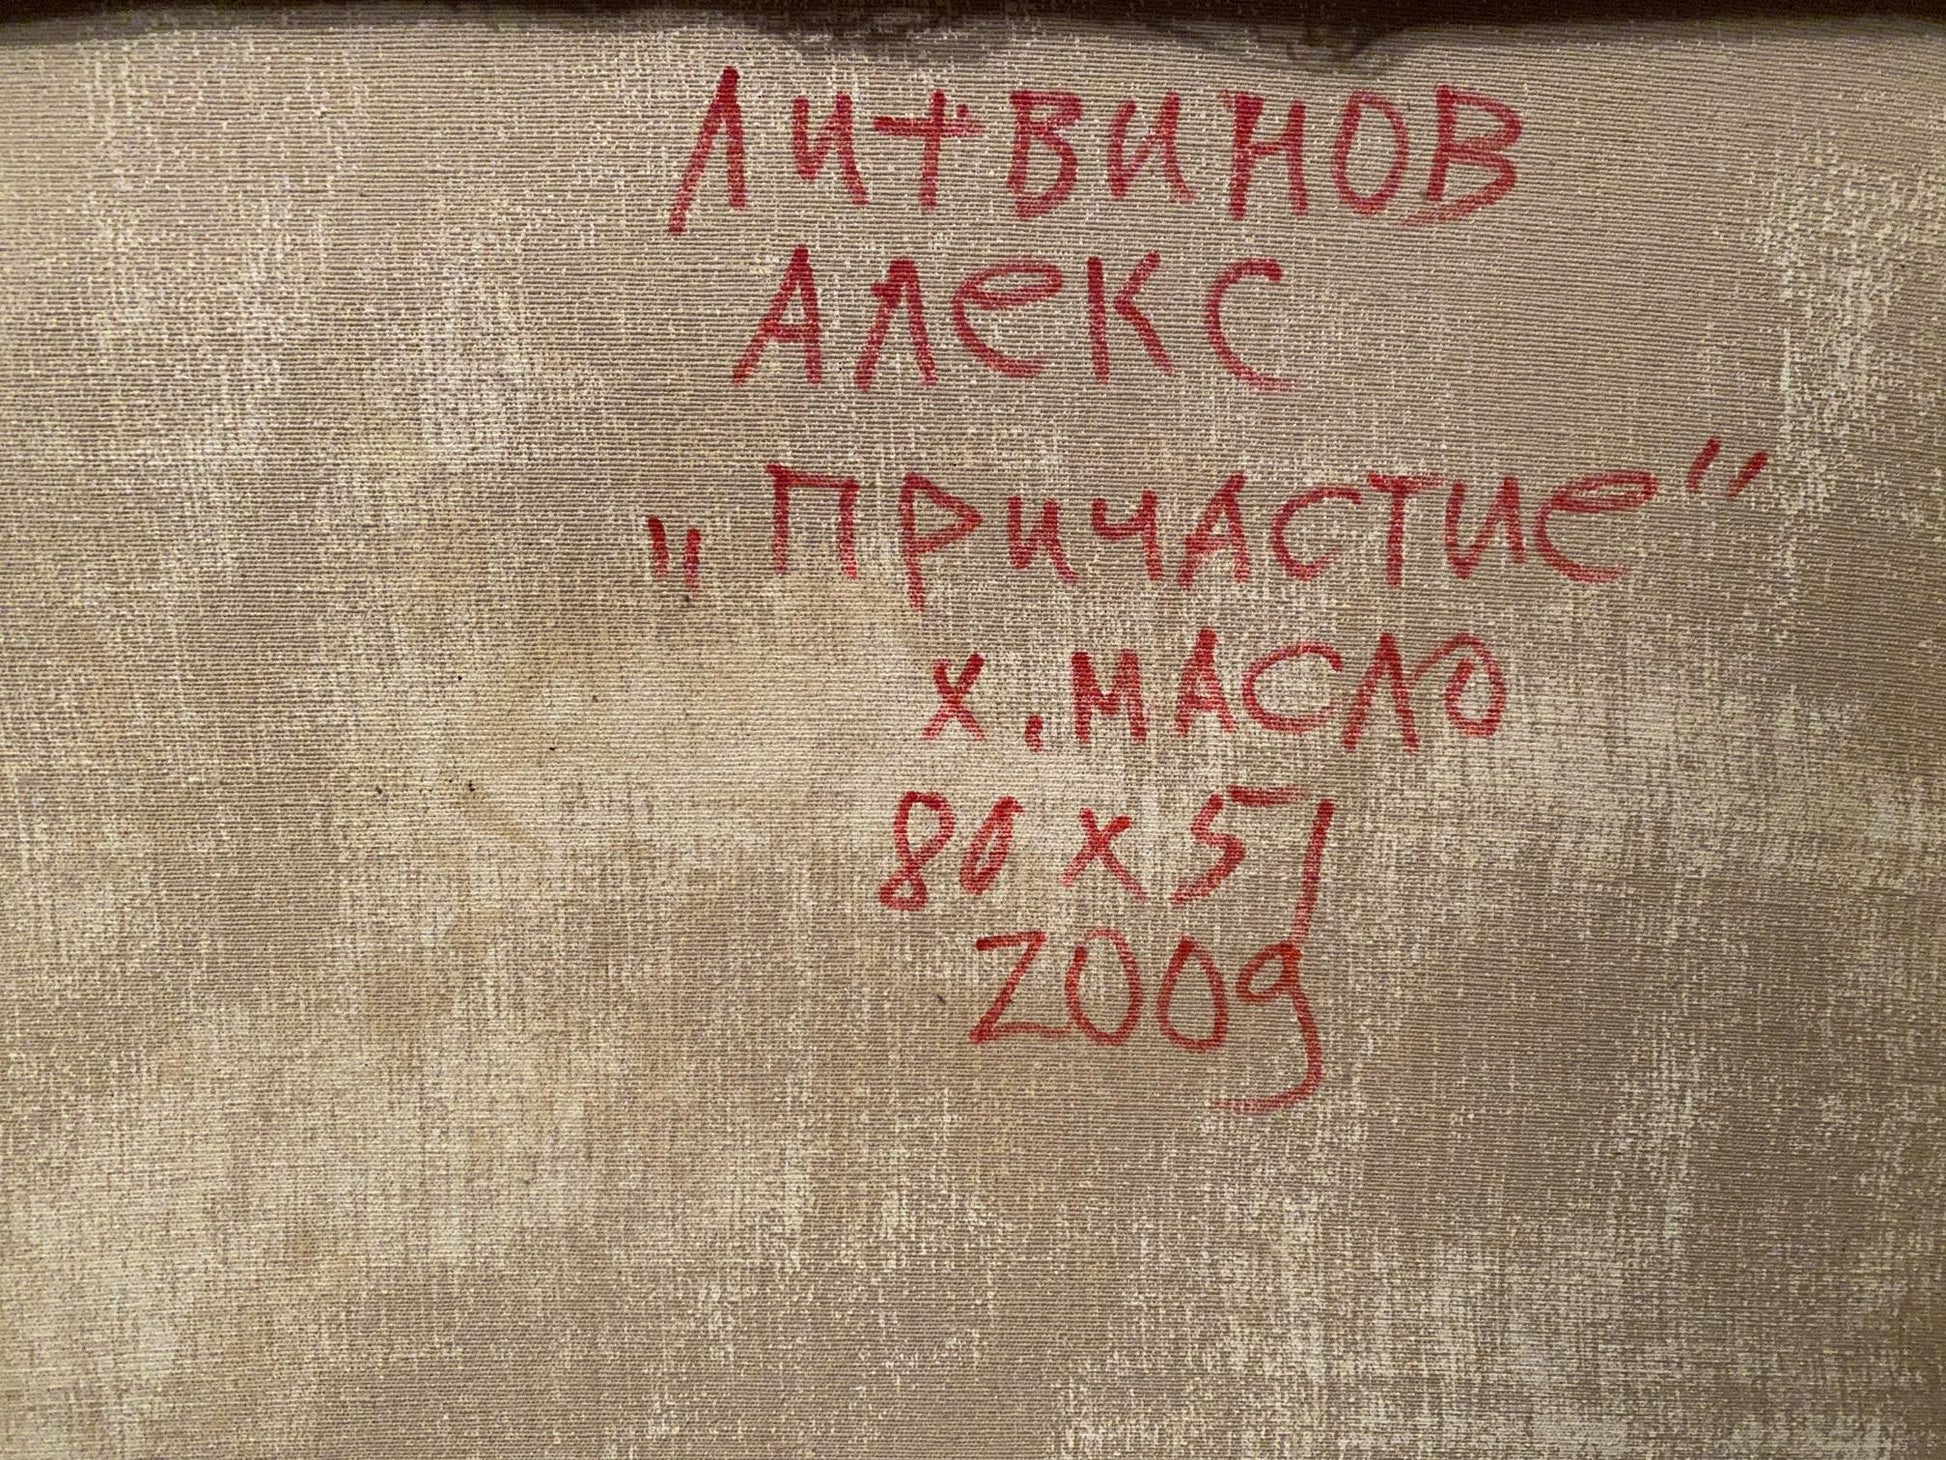 ЛИТВИНОВ
АЛЕКС
„ПРИЧАСТИЕ“
Х. МАСЛО
80 x 51
2009